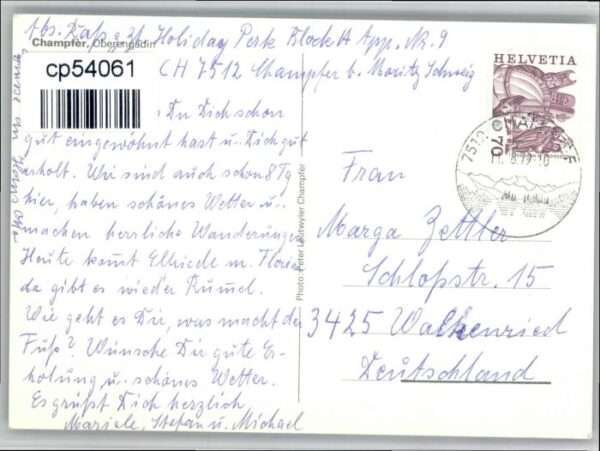 Abs. Zapf z. Zt. Holiday Park Block H App. Nr. 9
Champfèr, Oberengadin
CH 7512 Champfer b. Moritz Schweiz
cp54061
HELVETIA
70
7512 CHAMPFER
Du Dich schon
gut eingewöhnt hast u. Dich gut
erholt. Wir sind auch schon 8 Tg
hier, haben schönes Wetter u.
machen herrliche Wanderungen
Heute kommt Elhiede m. Floria
da gibt es wieder Rummel.
Wie geht es Dir, was macht der
Fuß? Wünsche Dir gute Er-
holung u. schönes Wetter.
Es grüßt Dich herzlich
Mariele, Stefan u. Michael
Photo: Peter Leutwyler Champfèr
Frau
Marga Zettler
Schloßstr. 15
3425 Walkenried
Deutschland